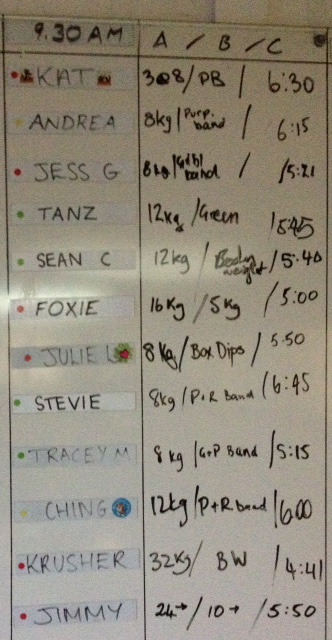 9.30 AM A / B / C
KAT 308/PB / 6:30
ANDREA 8kg/Purp. band / 6:15
JESS G 8kg/ band /5:21
TANZ 12kg/Green /5:45
SEAN C 12kg / Body weight /5:40
FOXIE 16Kg /5Kg /5:00
JULIE L 8Kg/Box Dips / 5:50
STEVIE 8kg/P+R Band /6:45
TRACEY M 8kg /G+P Band /5:15
CHING 12kg/P+R band/600
KRUSHER 32Kg/ BW /4:41
JIMMY 24→/10→/5:50